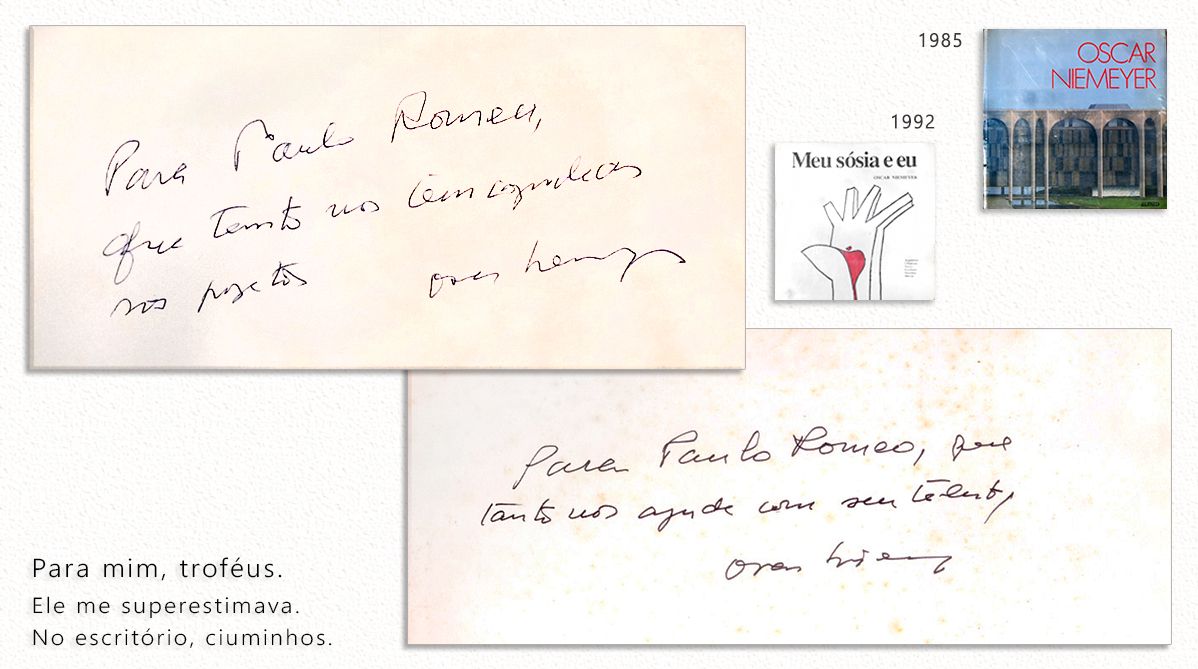 Para Paulo Romeu,
que tanto nos tem ajudado
nos projetos
Oscar Niemeyer
1985
OSCAR
NIEMEYER
1992
Meu sósia e eu
OSCAR NIEMEYER
Para Paulo Romeo, que
tanto nos ajuda com seu talento,
Oscar Niemeyer
Para mim, troféus.
Ele me superestimava.
No escritório, ciuminhos.